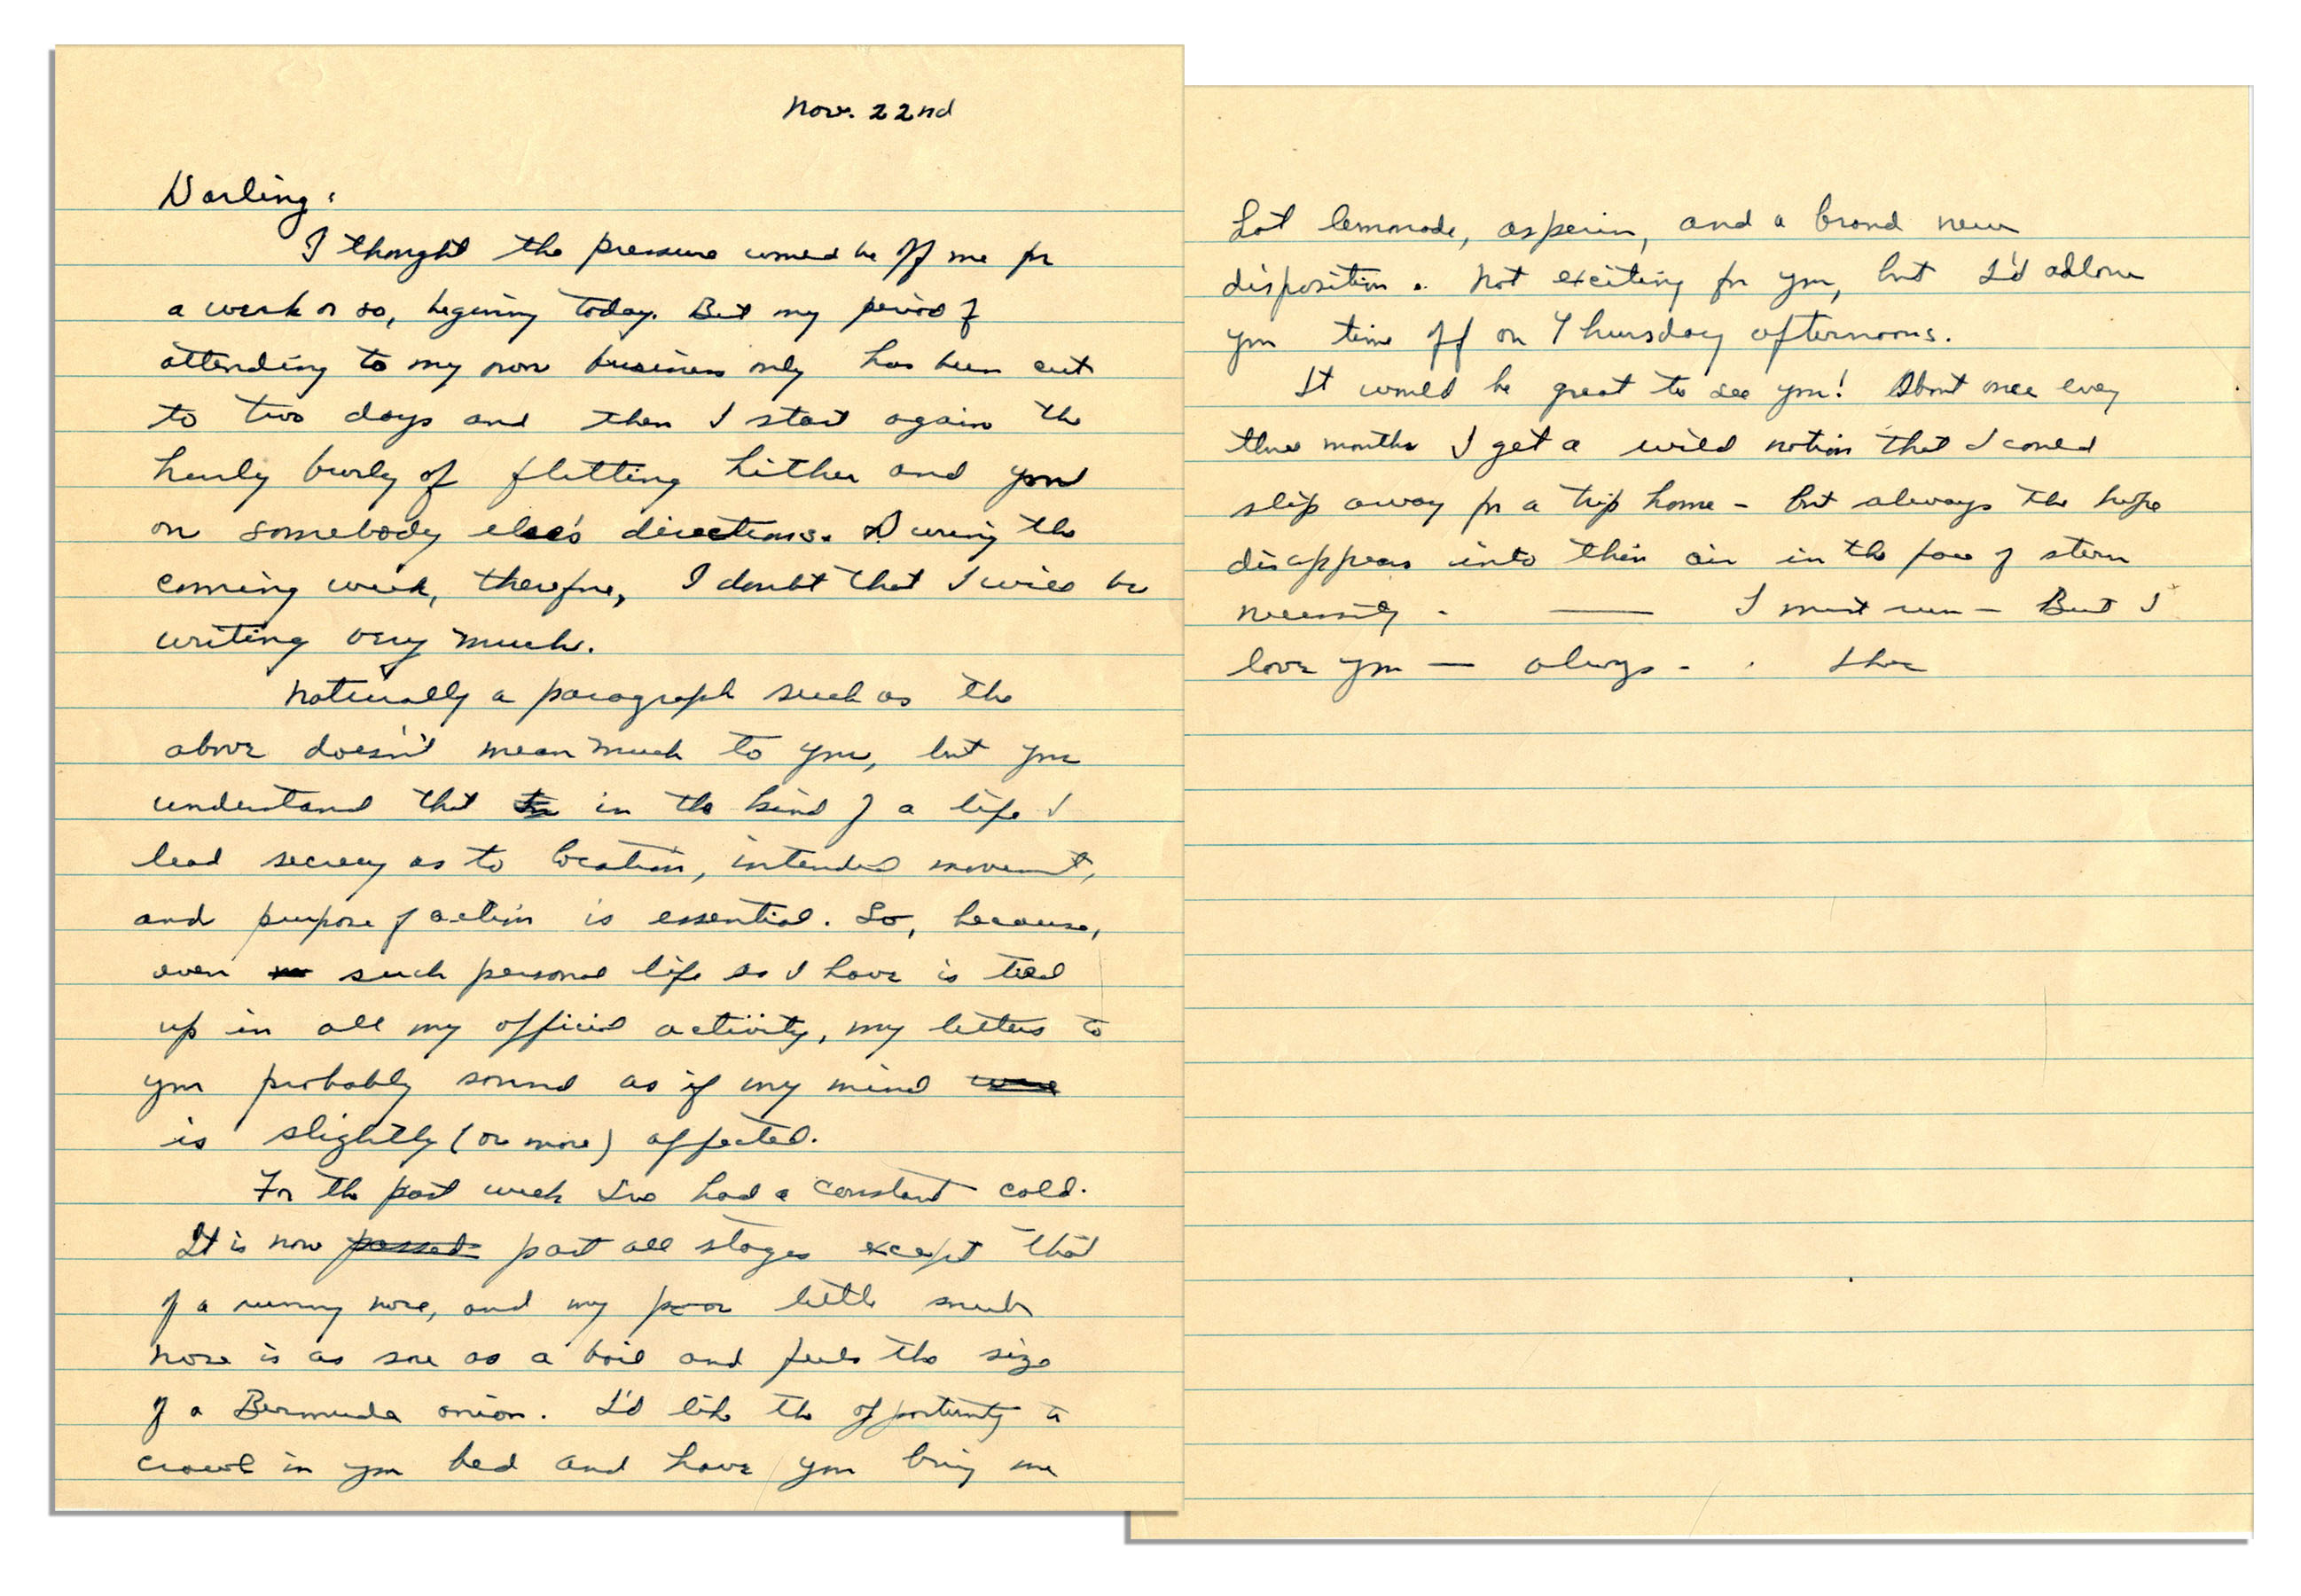 Nov. 22nd
Darling:
I thought the pressure would be off me for
a week or so, begining today. But my period of
attending to my own business only has been cut
to two days and then I start again the
hurly burly of flitting hither and yon
on somebody else's directions. During the
coming week, therefore, I doubt that I will be
writing very much.
Naturally a paragraph such as the
above doesn't mean much to you, but you
understand that in the kind of a life I
lead secrecy as to location, intended movement,
and purpose of action is essential. So, because,
even such personal life as I have is tied
up in all my official activity, my letters to
you probably sound as if my mind were
is slightly (or more) affected.
For the past week I've had a constant cold.
It is now passed past all stages except that
of a runny nose, and my poor little snub
nose is as sore as a boil and feels the size
of a Bermuda onion. I'd like the opportunity to
crawl in your bed and have you bring me
hot lemonade, asperin, and a brand new
disposition. Not exciting for you, but I'd allow
you time off on Thursday afternoons.
It would be great to see you! About once every
three months I get a wild notion that I could
slip away for a trip home - but always the hope
disappears into thin air in the face of stern
necessity. — I must run — But I
love you — always - . Ike